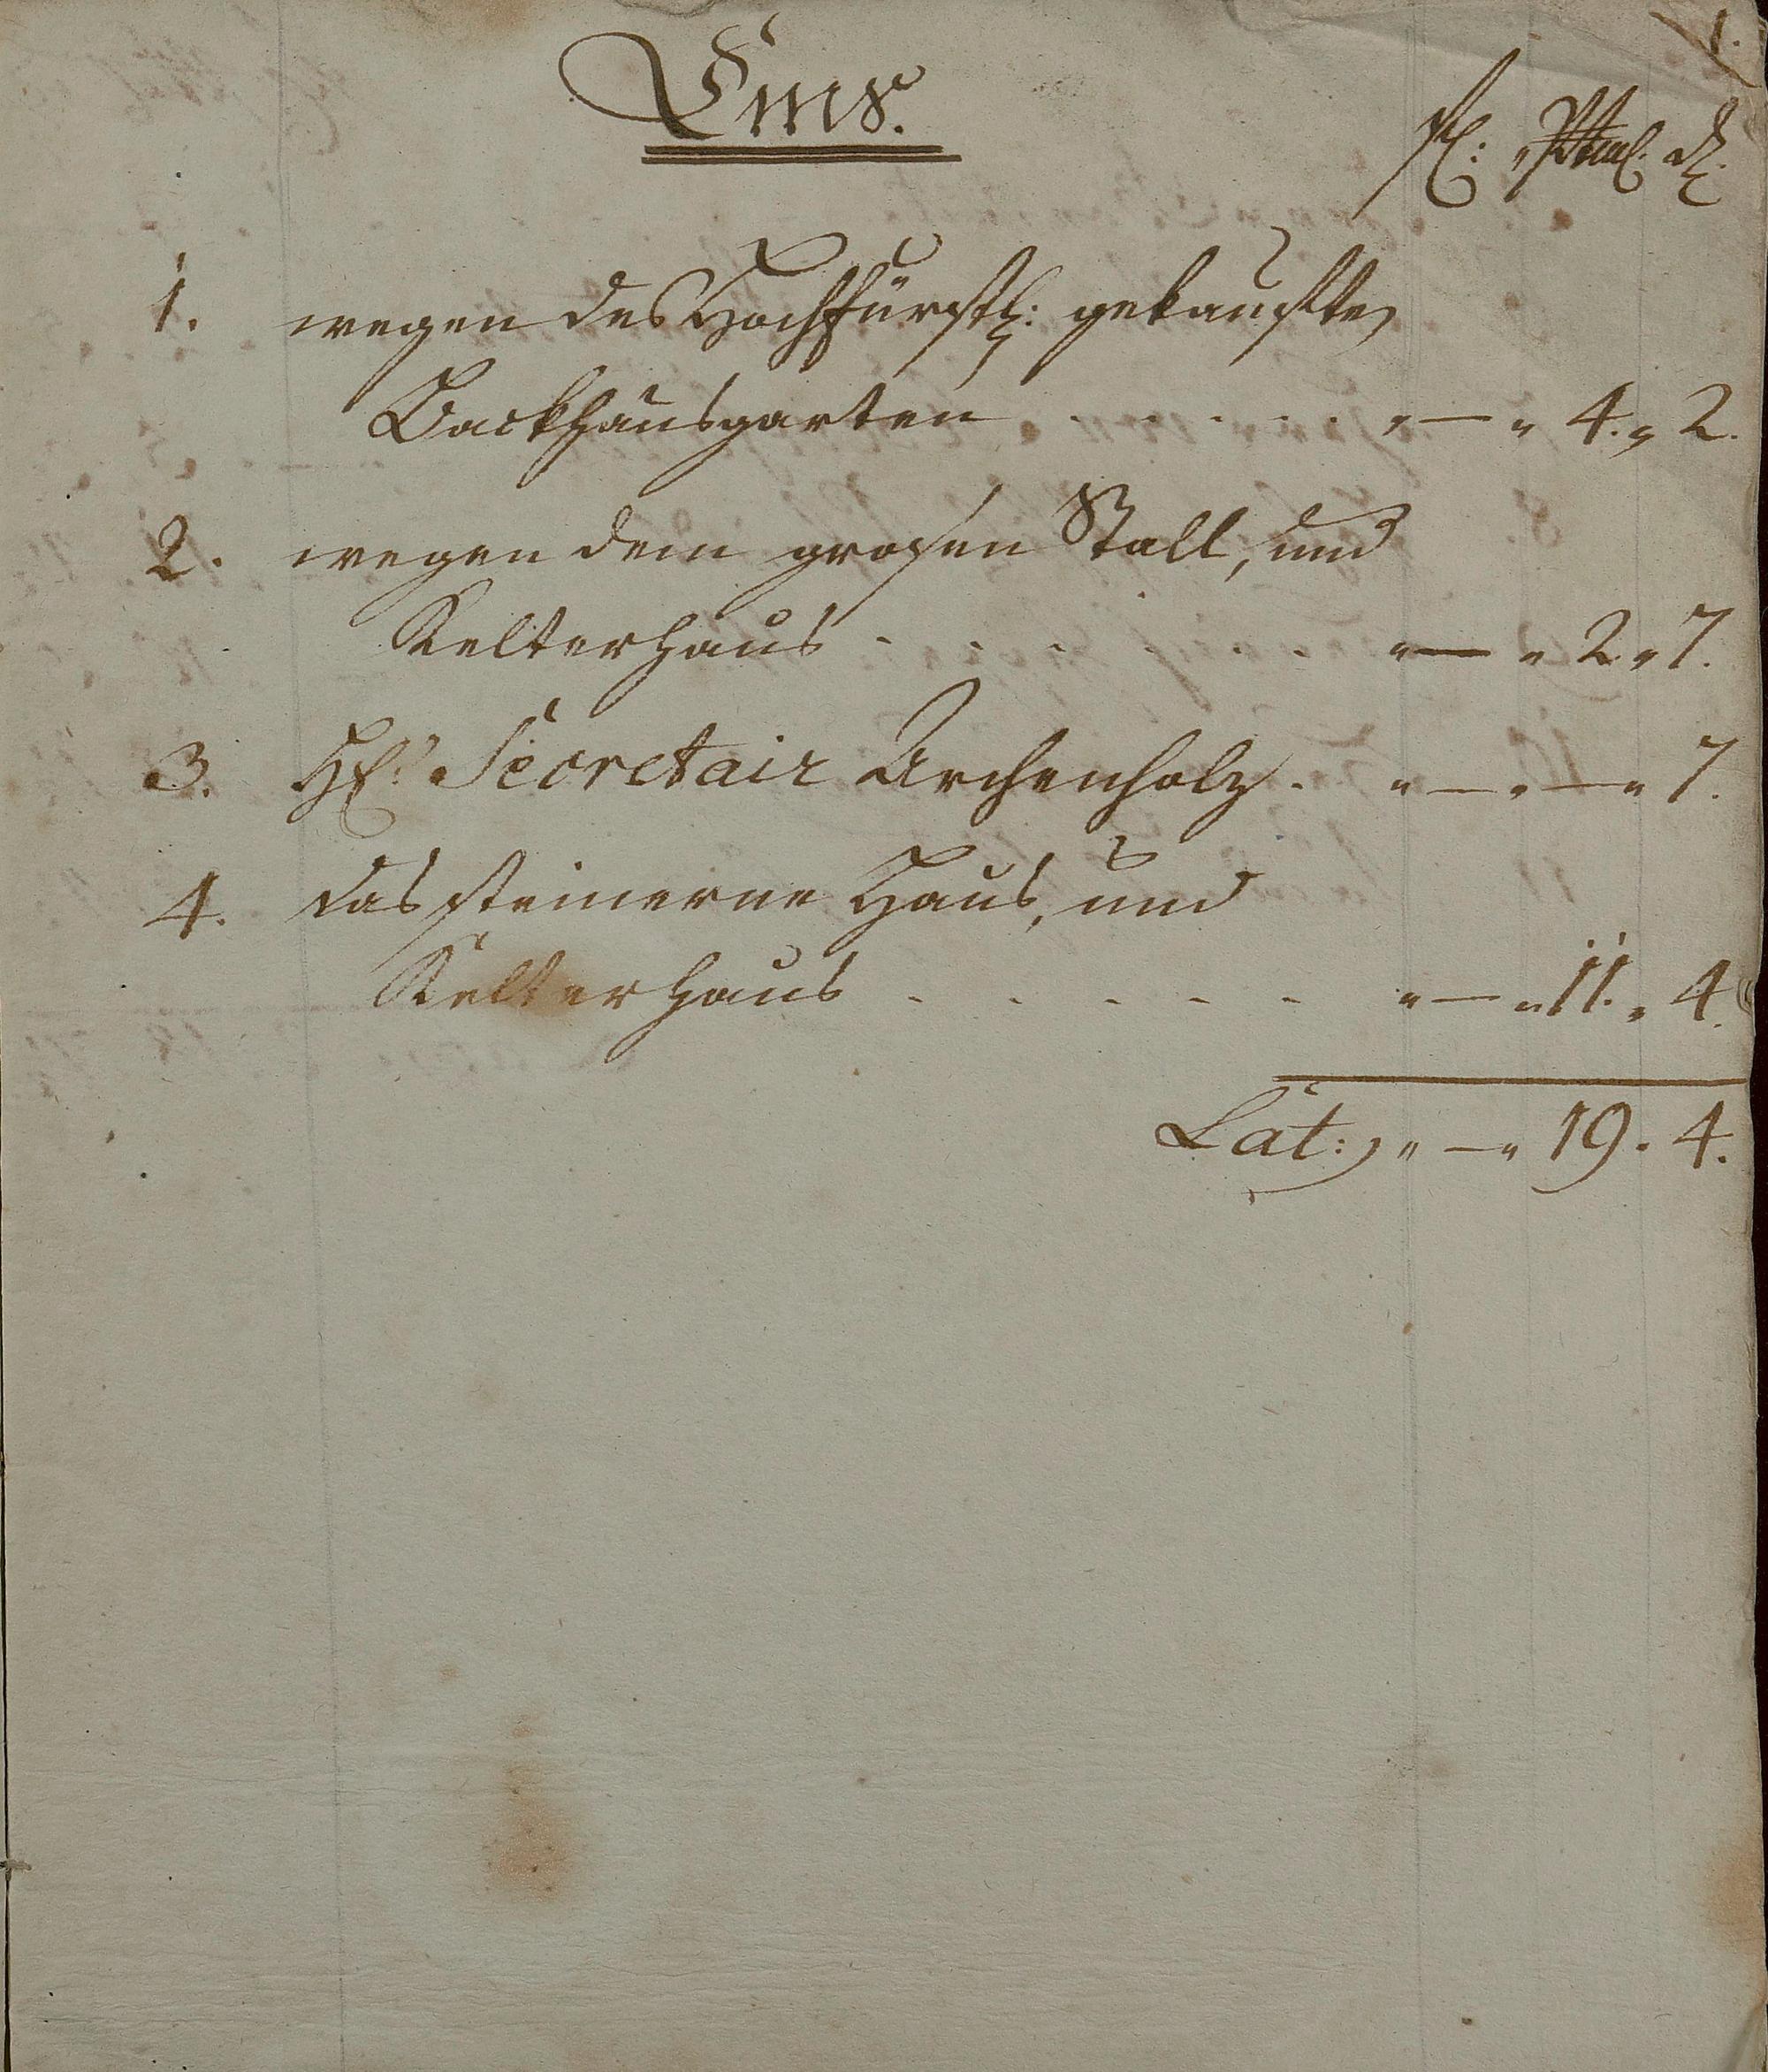 1.
Ems.
fl: d.
1. wegen des Hochfürstl: gekauften
Backhausgarten . . . . . . " — " 4. " 2.
2. wegen dem grosen Stall, und
Kelterhaus . . . . . . " — " 2 " 7.
3. H. Secretair Archenholz . " — " — " 7.
4. das steinerne Haus, und
Kelterhaus . . . . . " — " 11. " 4.
Lat: " — " 19. 4.